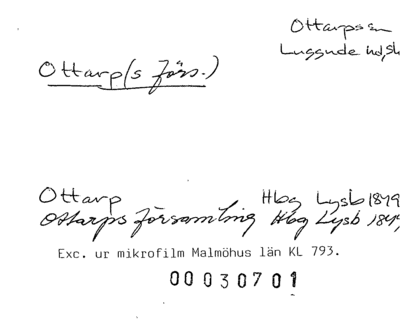 Ottarps sn
Luggude hd, Sk
Ottarp(s förs.)
Ottarp Hbg Lysb 1849
Ottarps församling Hbg Lysb 1849
Exc. ur mikrofilm Malmöhus län KL 793.
00030701